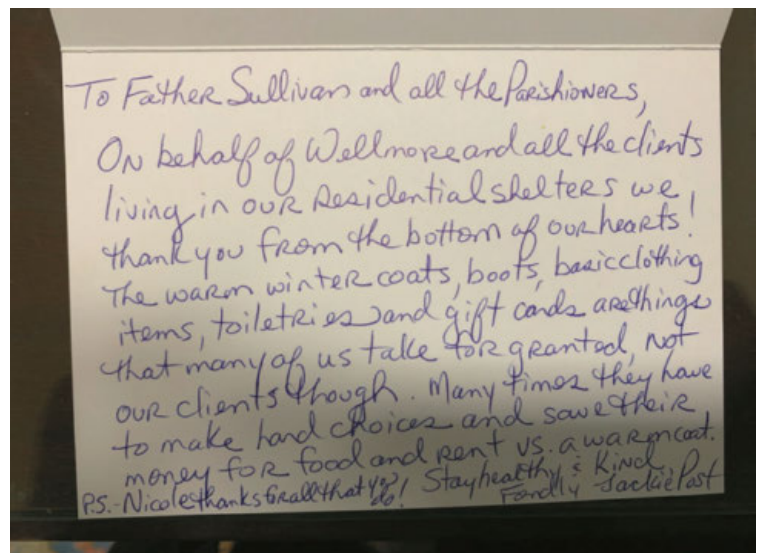 To Father Sullivan and all the Parishioners,
On behalf of Wellmore and all the clients
living in our residential shelters we
thank you from the bottom of our hearts!
The warm winter coats, boots, basic clothing
items, toiletries and gift cards are things
that many of us take for granted, not
our clients though. Many times they have
to make hard choices and save their
money for food and rent vs. a warm coat.
Stay healthy & Kind,
P.S. - Nicole thanks for all that you do!
Fondly Jackie Post